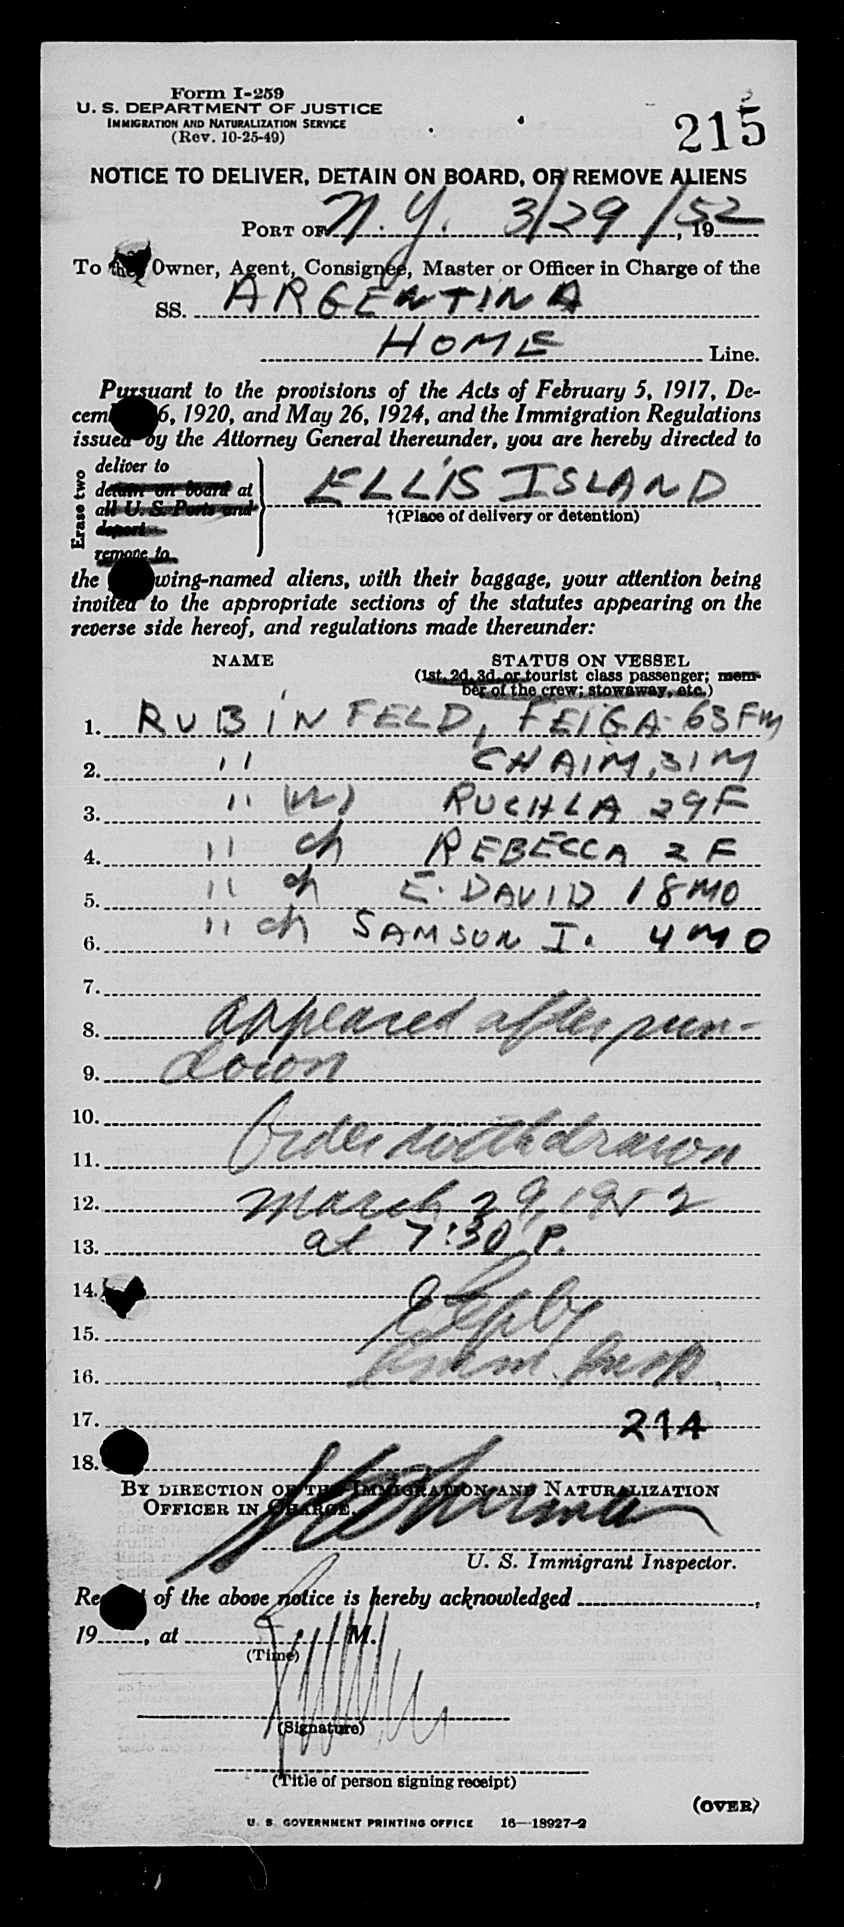 Form I-259
U. S. DEPARTMENT OF JUSTICE
IMMIGRATION AND NATURALIZATION SERVICE
(Rev. 10-25-49)
215
NOTICE TO DELIVER, DETAIN ON BOARD, OR REMOVE ALIENS
PORT OF N. Y. 3/29/52, 19
To the Owner, Agent, Consignee, Master or Officer in Charge of the
SS. ARGENTINA
HOME Line.
Pursuant to the provisions of the Acts of February 5, 1917, De-
cem 6, 1920, and May 26, 1924, and the Immigration Regulations
issued by the Attorney General thereunder, you are hereby directed to
Erase two
deliver to
detain on board at
all U. S. Ports and
deport
remove to
ELLIS ISLAND
†(Place of delivery or detention)
the wing-named aliens, with their baggage, your attention being
invited to the appropriate sections of the statutes appearing on the
reverse side hereof, and regulations made thereunder:
NAME STATUS ON VESSEL
(1st, 2d, 3d, or tourist class passenger; mem-
ber of the crew; stowaway, etc.)
1. RUBINFELD, FEIGA 63 F M
2. " CHAIM, 31 M
3. " (W) RUCHLA 29 F
4. " ch REBECCA 2 F
5. " ch E. DAVID 18 MO
6. " ch SAMSON I. 4 MO
7.
8. appeared after sun-
9. down
10.
11. Order withdrawn
12. March 29, 1952
13. at 7:30 P.
14.
15.
16. Imm. Insp.
17. 214
18.
BY DIRECTION OF THE IMMIGRATION AND NATURALIZATION
OFFICER IN CHARGE.
U. S. Immigrant Inspector.
Re of the above notice is hereby acknowledged ,
19 , at M.
(Time)
(Signature)
(Title of person signing receipt)
(OVER)
U. S. GOVERNMENT PRINTING OFFICE 16—18927-2